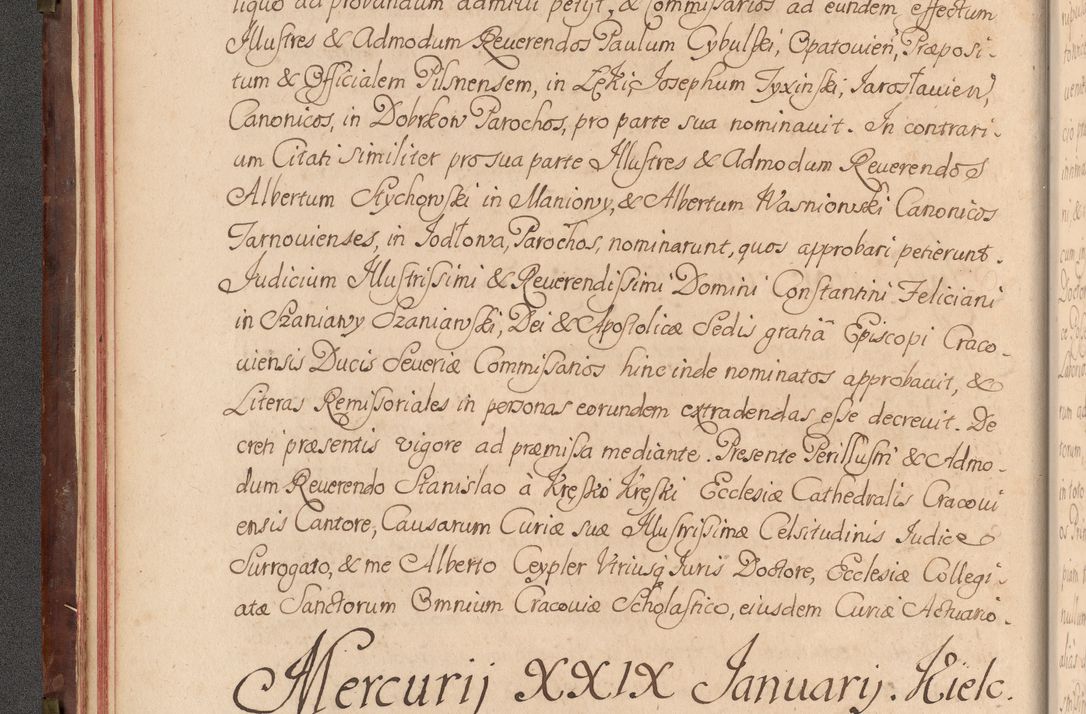 liquo ad probandum admitti petijt, & Commissarios ad eundem effectum
Illustres & Admodum Reuerendos Paulum Cybulski, Opatouien, Præposi-
tum & Officialem Pilsnensem, in Lęki, Josephum Tyxinski, Jarosłauien,
Canonicos, in Dobrkow Parochos, pro parte sua nominauit. In contrari-
um Citati similiter pro sua parte Illustres & Admodum Reuerendos
Albertum Stychowski in Maniowy, & Albertum Wasniowski Canonicos
Tarnouienses, in Jodłowa, Parochos, nominarunt, quos approbari petierunt.
Judicium Illustrissimi & Reuerendissimi Domini Constantini Feliciani
in Szaniawy Szaniawski, Dei & Apostolicæ Sedis gratiâ Episcopi Craco-
uiensis Ducis Seueriæ Commissarios hinc inde nominatos approbauit, &
Literas Remissoriales in personas eorundem extradendas esse decreuit. De
creti præsentis vigore ad præmissa mediante. Presente Perillustri & Admo-
dum Reuerendo Stanislao à Kręsko Kręski Ecclesiæ Cathedralis Cracoui
ensis Cantore, Causarum Curiæ suæ Illustrissimæ Celsitudinis Judice
Surrogato, & me Alberto Ceypler Vtriusq Juris Doctore, Ecclesiæ Collegi-
atæ Sanctorum Omnium Cracouiæ Scholastico, eiusdem Curiæ Actuario.
Mercurij XXIX Januarij. Kielc.